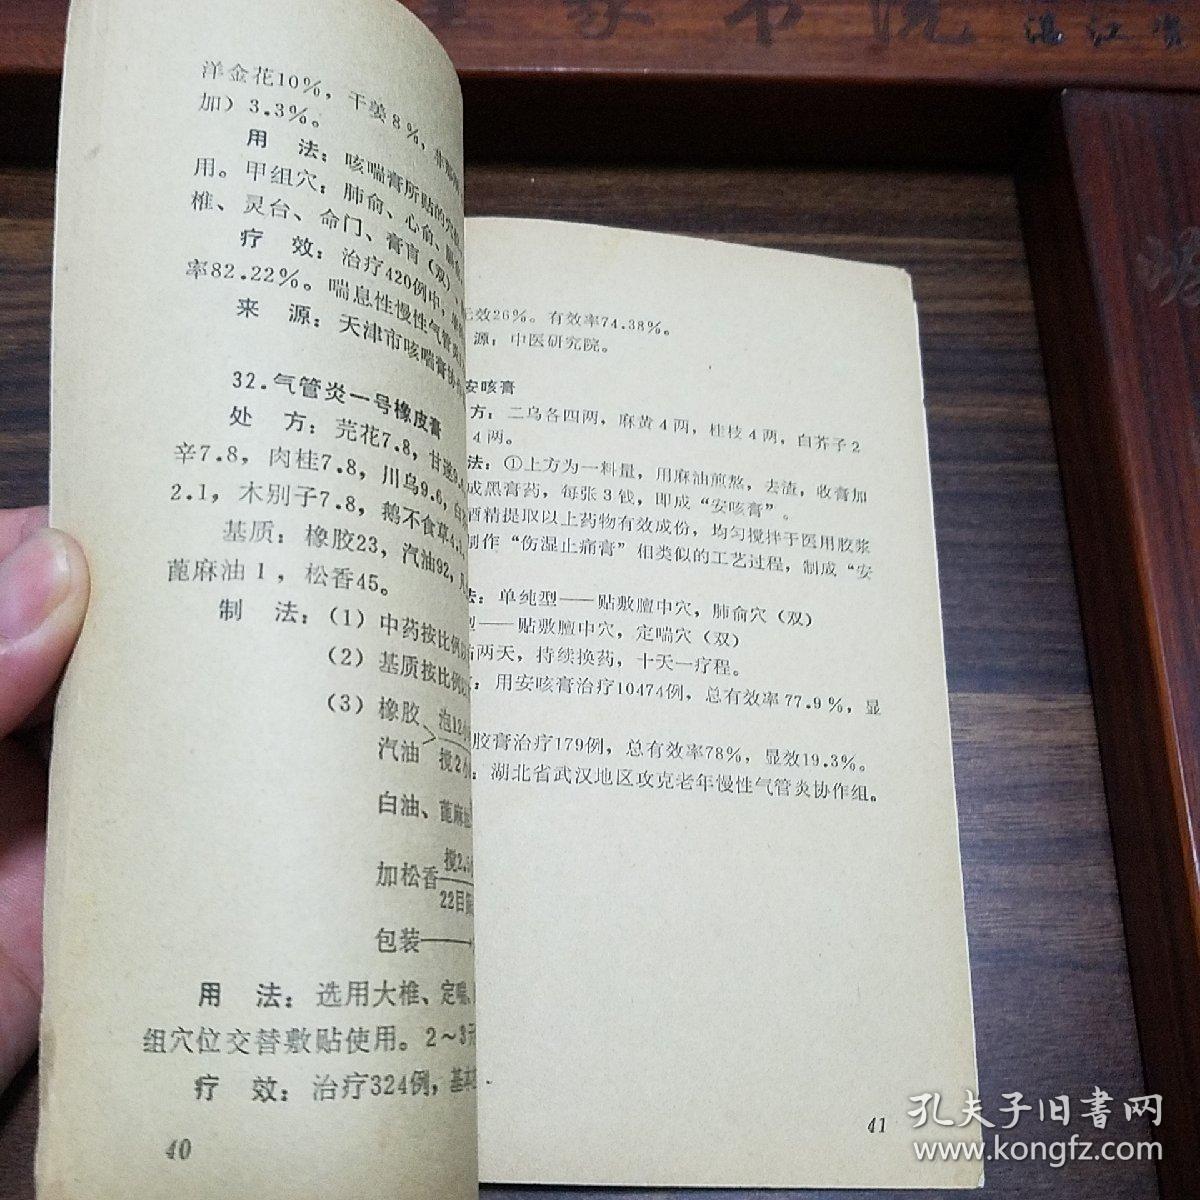 洋金花10%，干姜8%，
加）3.3%。
用　法：咳喘膏所贴的穴
用。甲组穴：肺俞、心俞、
椎、灵台、命门、膏肓（双）、
疗　效：治疗420例中，
率82.22%。喘息性慢性气管炎
来　源：天津市咳喘膏协
32.气管炎一号橡皮膏
处　方：芫花7.8，甘遂9.
辛7.8，肉桂7.8，川乌9.6，白
2.1，木别子7.8，鹅不食草4.
基质：橡胶23，汽油92，
蓖麻油1，松香45。
制　法：（1）中药按比例
（2）基质按比例
（3）橡胶
泡12小
汽油
搅2小
白油、蓖麻
加松香
搅2.5
22目
包装
用　法：选用大椎、定喘、
组穴位交替敷贴使用。2～3
疗　效：治疗324例，基本
40
无效26%。有效率74.38%。
源：中医研究院。
安咳膏
方：二乌各四两，麻黄4两，桂枝4两，白芥子2
4两。
法：①上方为一料量，用麻油煎熬，去渣，收膏加
成黑膏药，每张3钱，即成“安咳膏”。
酒精提取以上药物有效成份，均匀搅拌于医用胶浆
制作“伤湿止痛膏”相类似的工艺过程，制成“安
法：单纯型——贴敷膻中穴，肺俞穴（双）
型——贴敷膻中穴，定喘穴（双）
贴两天，持续换药，十天一疗程。
：用安咳膏治疗10474例，总有效率77.9%，显
胶膏治疗179例，总有效率78%，显效19.3%。
：湖北省武汉地区攻克老年慢性气管炎协作组。
41
书院
孔夫子旧书网
www.kongfz.com